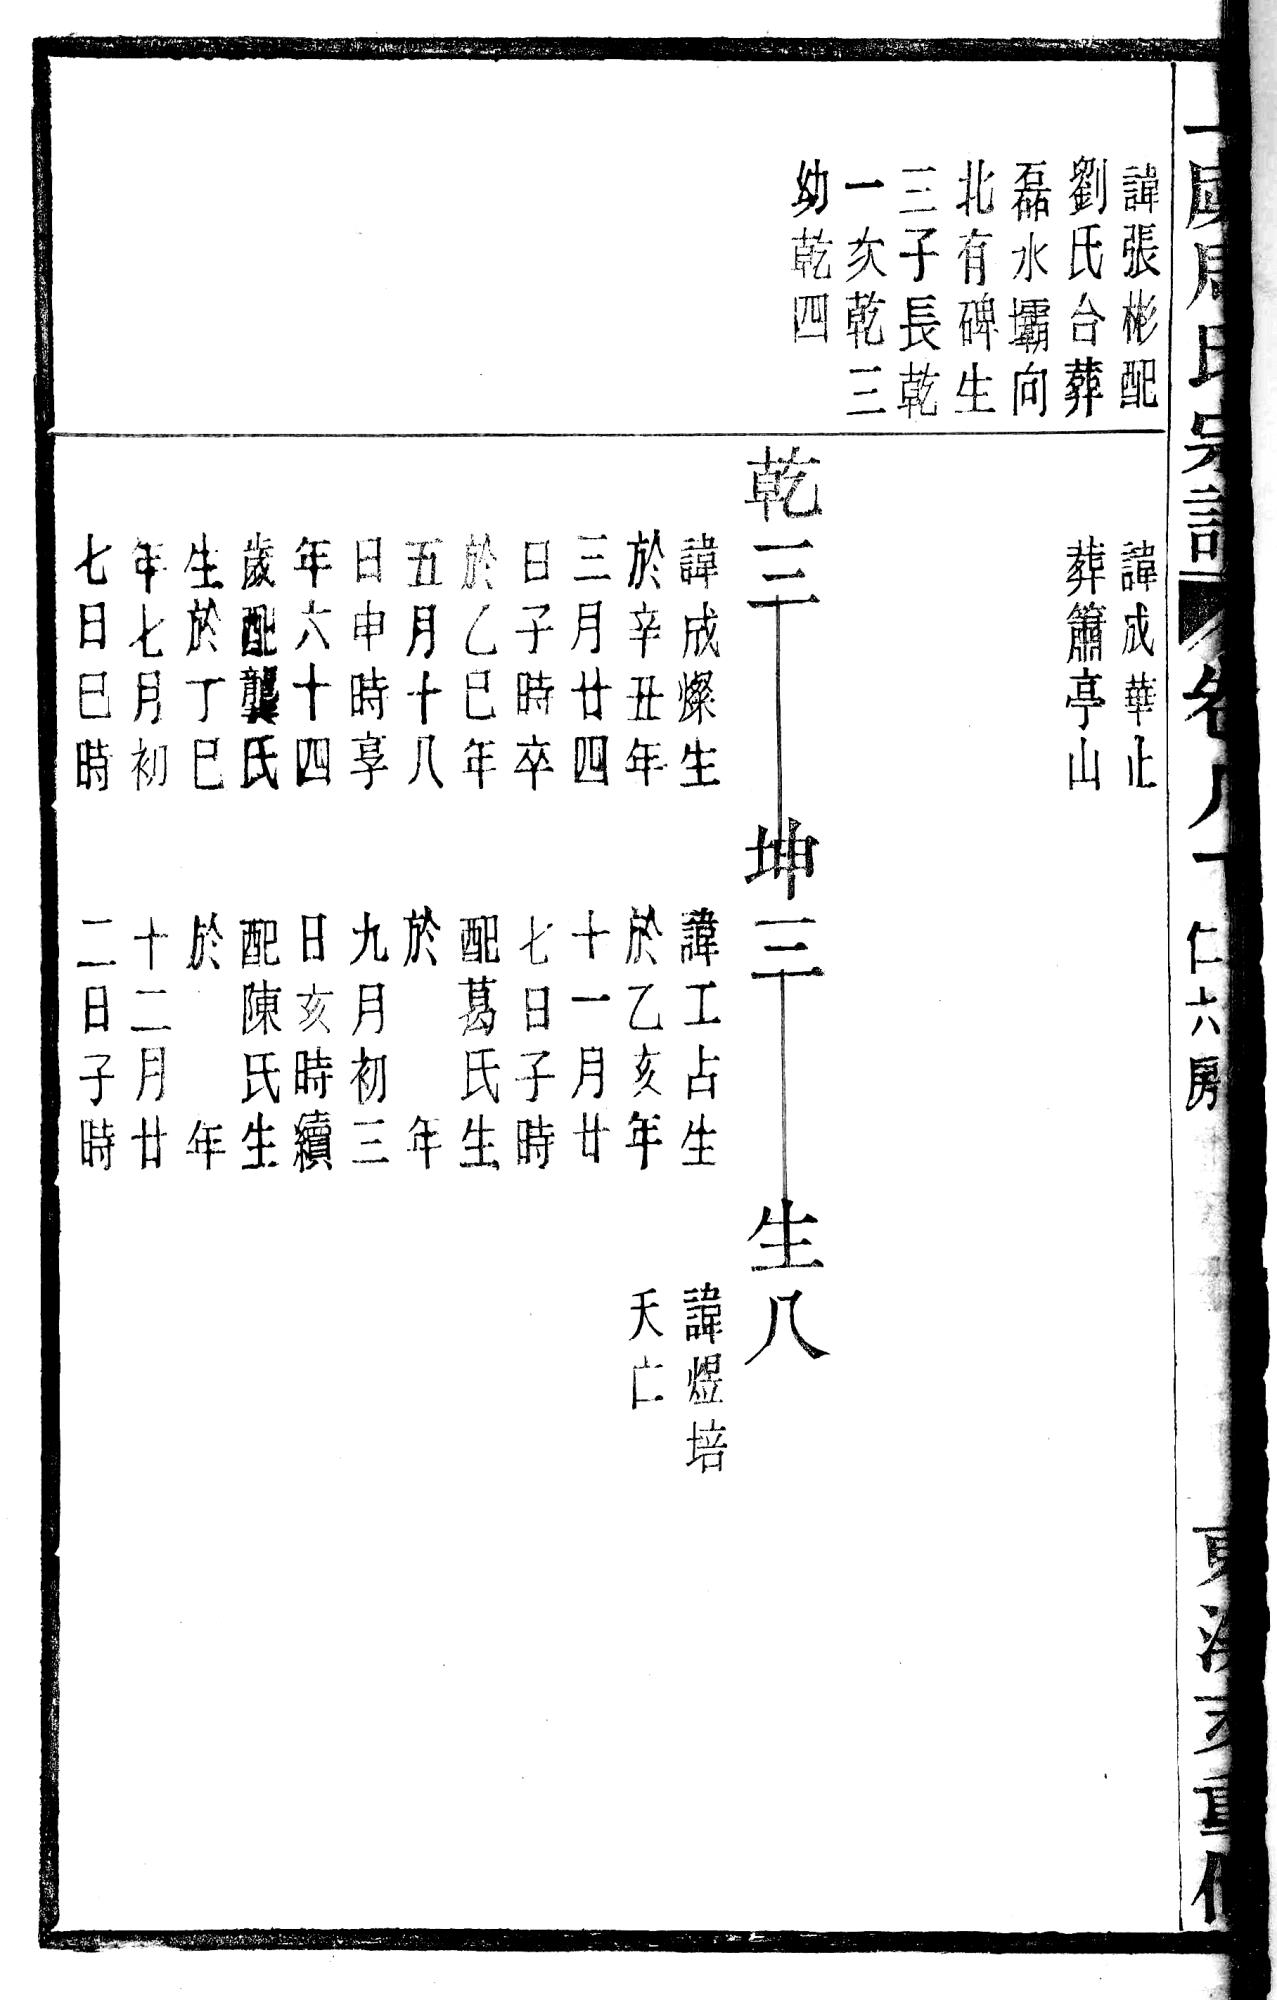 周氏宗譜 卷八 仁六房
重修
諱張彬配
劉氏合葬
磊水壩向
北有碑生
三子長乾
一次乾三
幼乾四
諱成華止
葬簫亭山
乾三 坤三 生八
諱成燦生
於辛丑年
三月廿四
日子時卒
於乙巳年
五月十八
日申時享
年六十四
歲配龔氏
生於丁巳
年七月初
七日巳時
諱工占生
於乙亥年
十一月廿
七日子時
配葛氏生
於 年
九月初三
日亥時續
配陳氏生
於 年
十二月廿
二日子時
諱煜培
夭亡